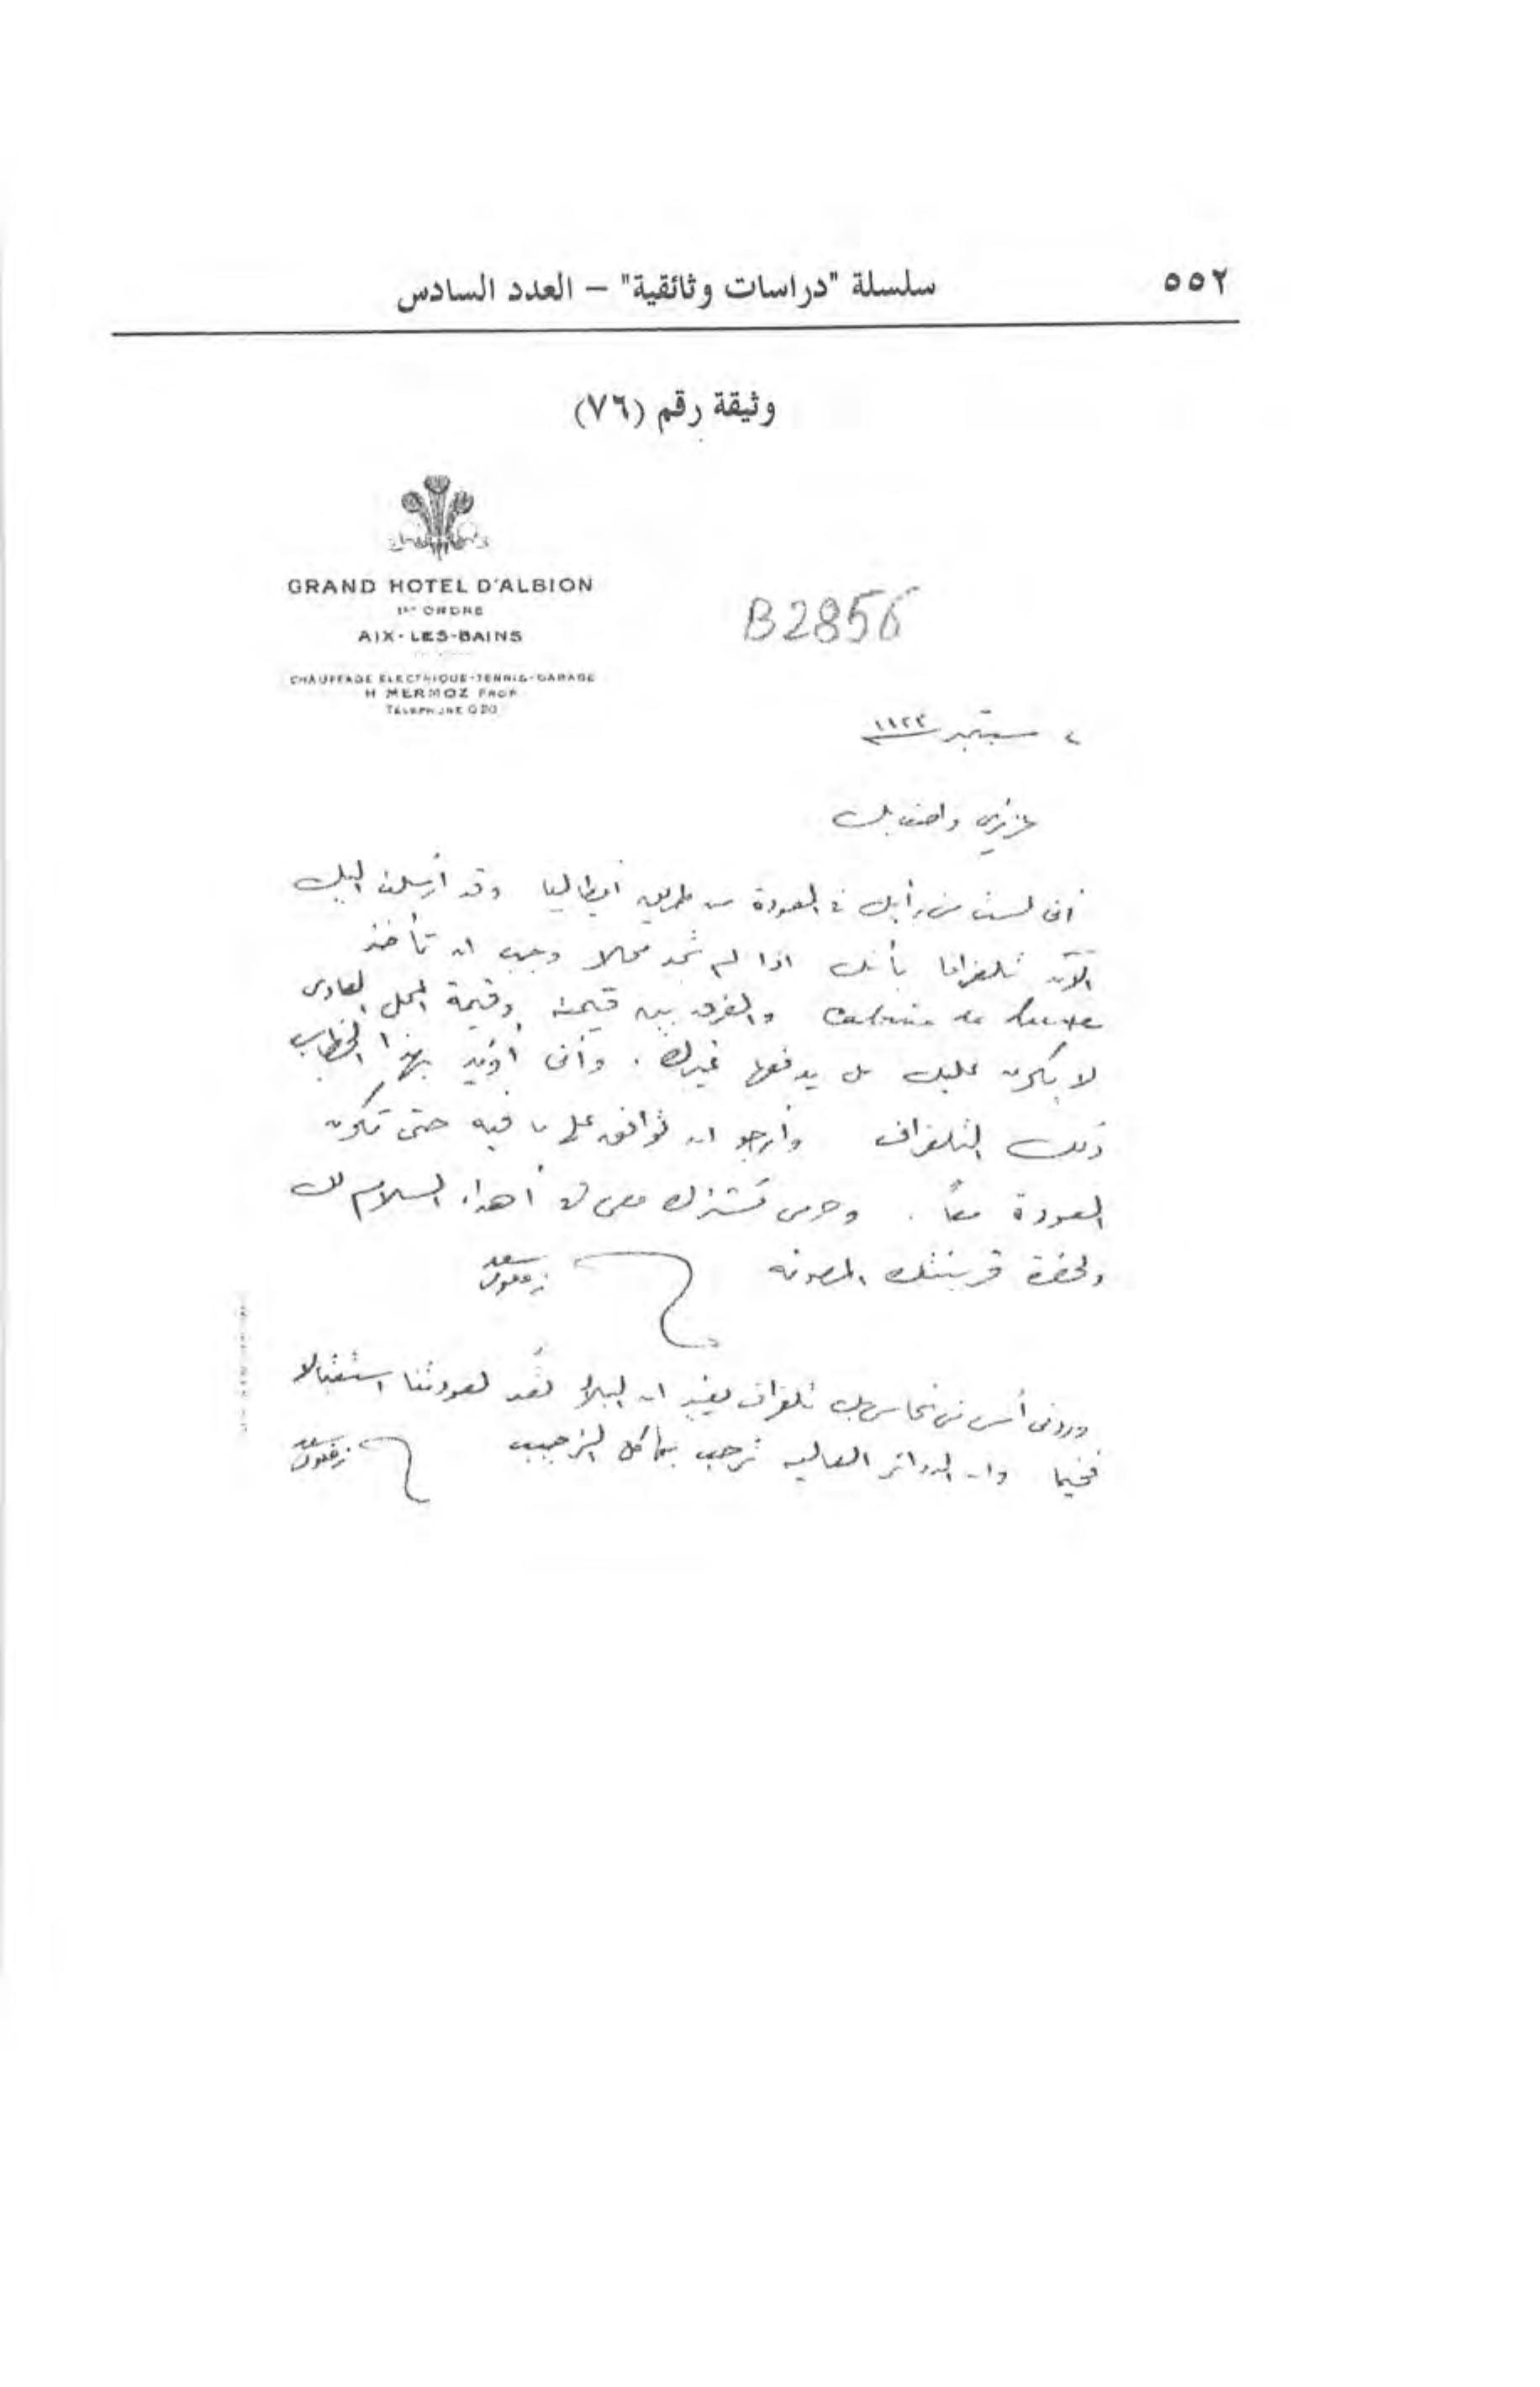 ٥٥٢
سلسلة "دراسات وثائقية" – العدد السادس
وثيقة رقم (٧٦)
GRAND HOTEL D'ALBION
1er ORDRE
AIX-LES-BAINS
CHAUFFAGE ELECTRIQUE-TENNIS-GARAGE
H MERMOZ PROP
TELEPHONE 0 20
B2856
سبتمبر ١٩٢٣
عزيزي واصف بك
انى لست من رأيك فى العودة من طريق ايطاليا وقد أرسلت اليك
الآن تلغرافا بأنك اذا لم تجد محلا وجب ان تأخذ
Cabine de luxe والفرق بين قيمته وقيمة المحل العادى
لا يكون عليك بل يدفعها غيرك . وانى اؤيد بهذا الخطاب
ذلك التلغراف وأرجو ان توافق على ما فيه حتى تكون
العودة معاً . وحرمى تشترك معى فى أهداء السلام لك
ولحضرة قرينتك المصونه
سعد
زغلول
وردنى أمس من نحاس بك تلغراف يفيد ان البلاد تعد لعودتنا استقبالا
فخيما وان الدوائر العاليه ترحب بها كل الترحيب
سعد
زغلول